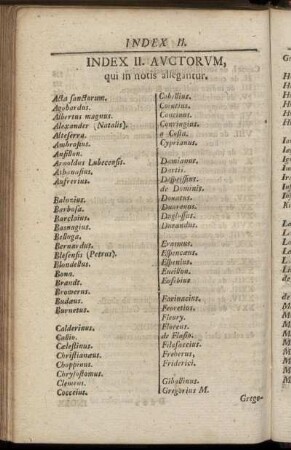 INDEX II.
INDEX II. AVCTORVM,
qui in notis allegantur.
Acta sanctorum.
Agobardus.
Albertus magnus.
Alexander (Natalis).
Alteserra.
Ambrosius.
Ansillon.
Arnoldus Lubecensis.
Athanasius.
Aufrerius.
Baluzius.
Barbosa.
Barclaius.
Basnagius.
Belluga.
Bernardus.
Blesensis (Petrus).
Blondellus.
Bona.
Brandt.
Browerus.
Budæus.
Burnetus.
Calderinus.
Callin.
Cælestinus.
Christianæus.
Choppinus.
Chrysostomus.
Clemens.
Cocceius.
Cabellius.
Conatius.
Concinus.
Conringius.
a Costa.
Cyprianus.
Damianus.
Dartis.
Despeissius.
de Dominis.
Donatus.
Duarenus.
Duglossus.
Durandus.
Erasmus.
Espencæus.
Espenius.
Eucillus.
Eusebius
Farinacius.
Fevretius.
Fleury.
Florens.
de Flosio.
Filesaccius.
Froberus,
Friderici.
Gibellinus.
Gregorius M.
Grego-